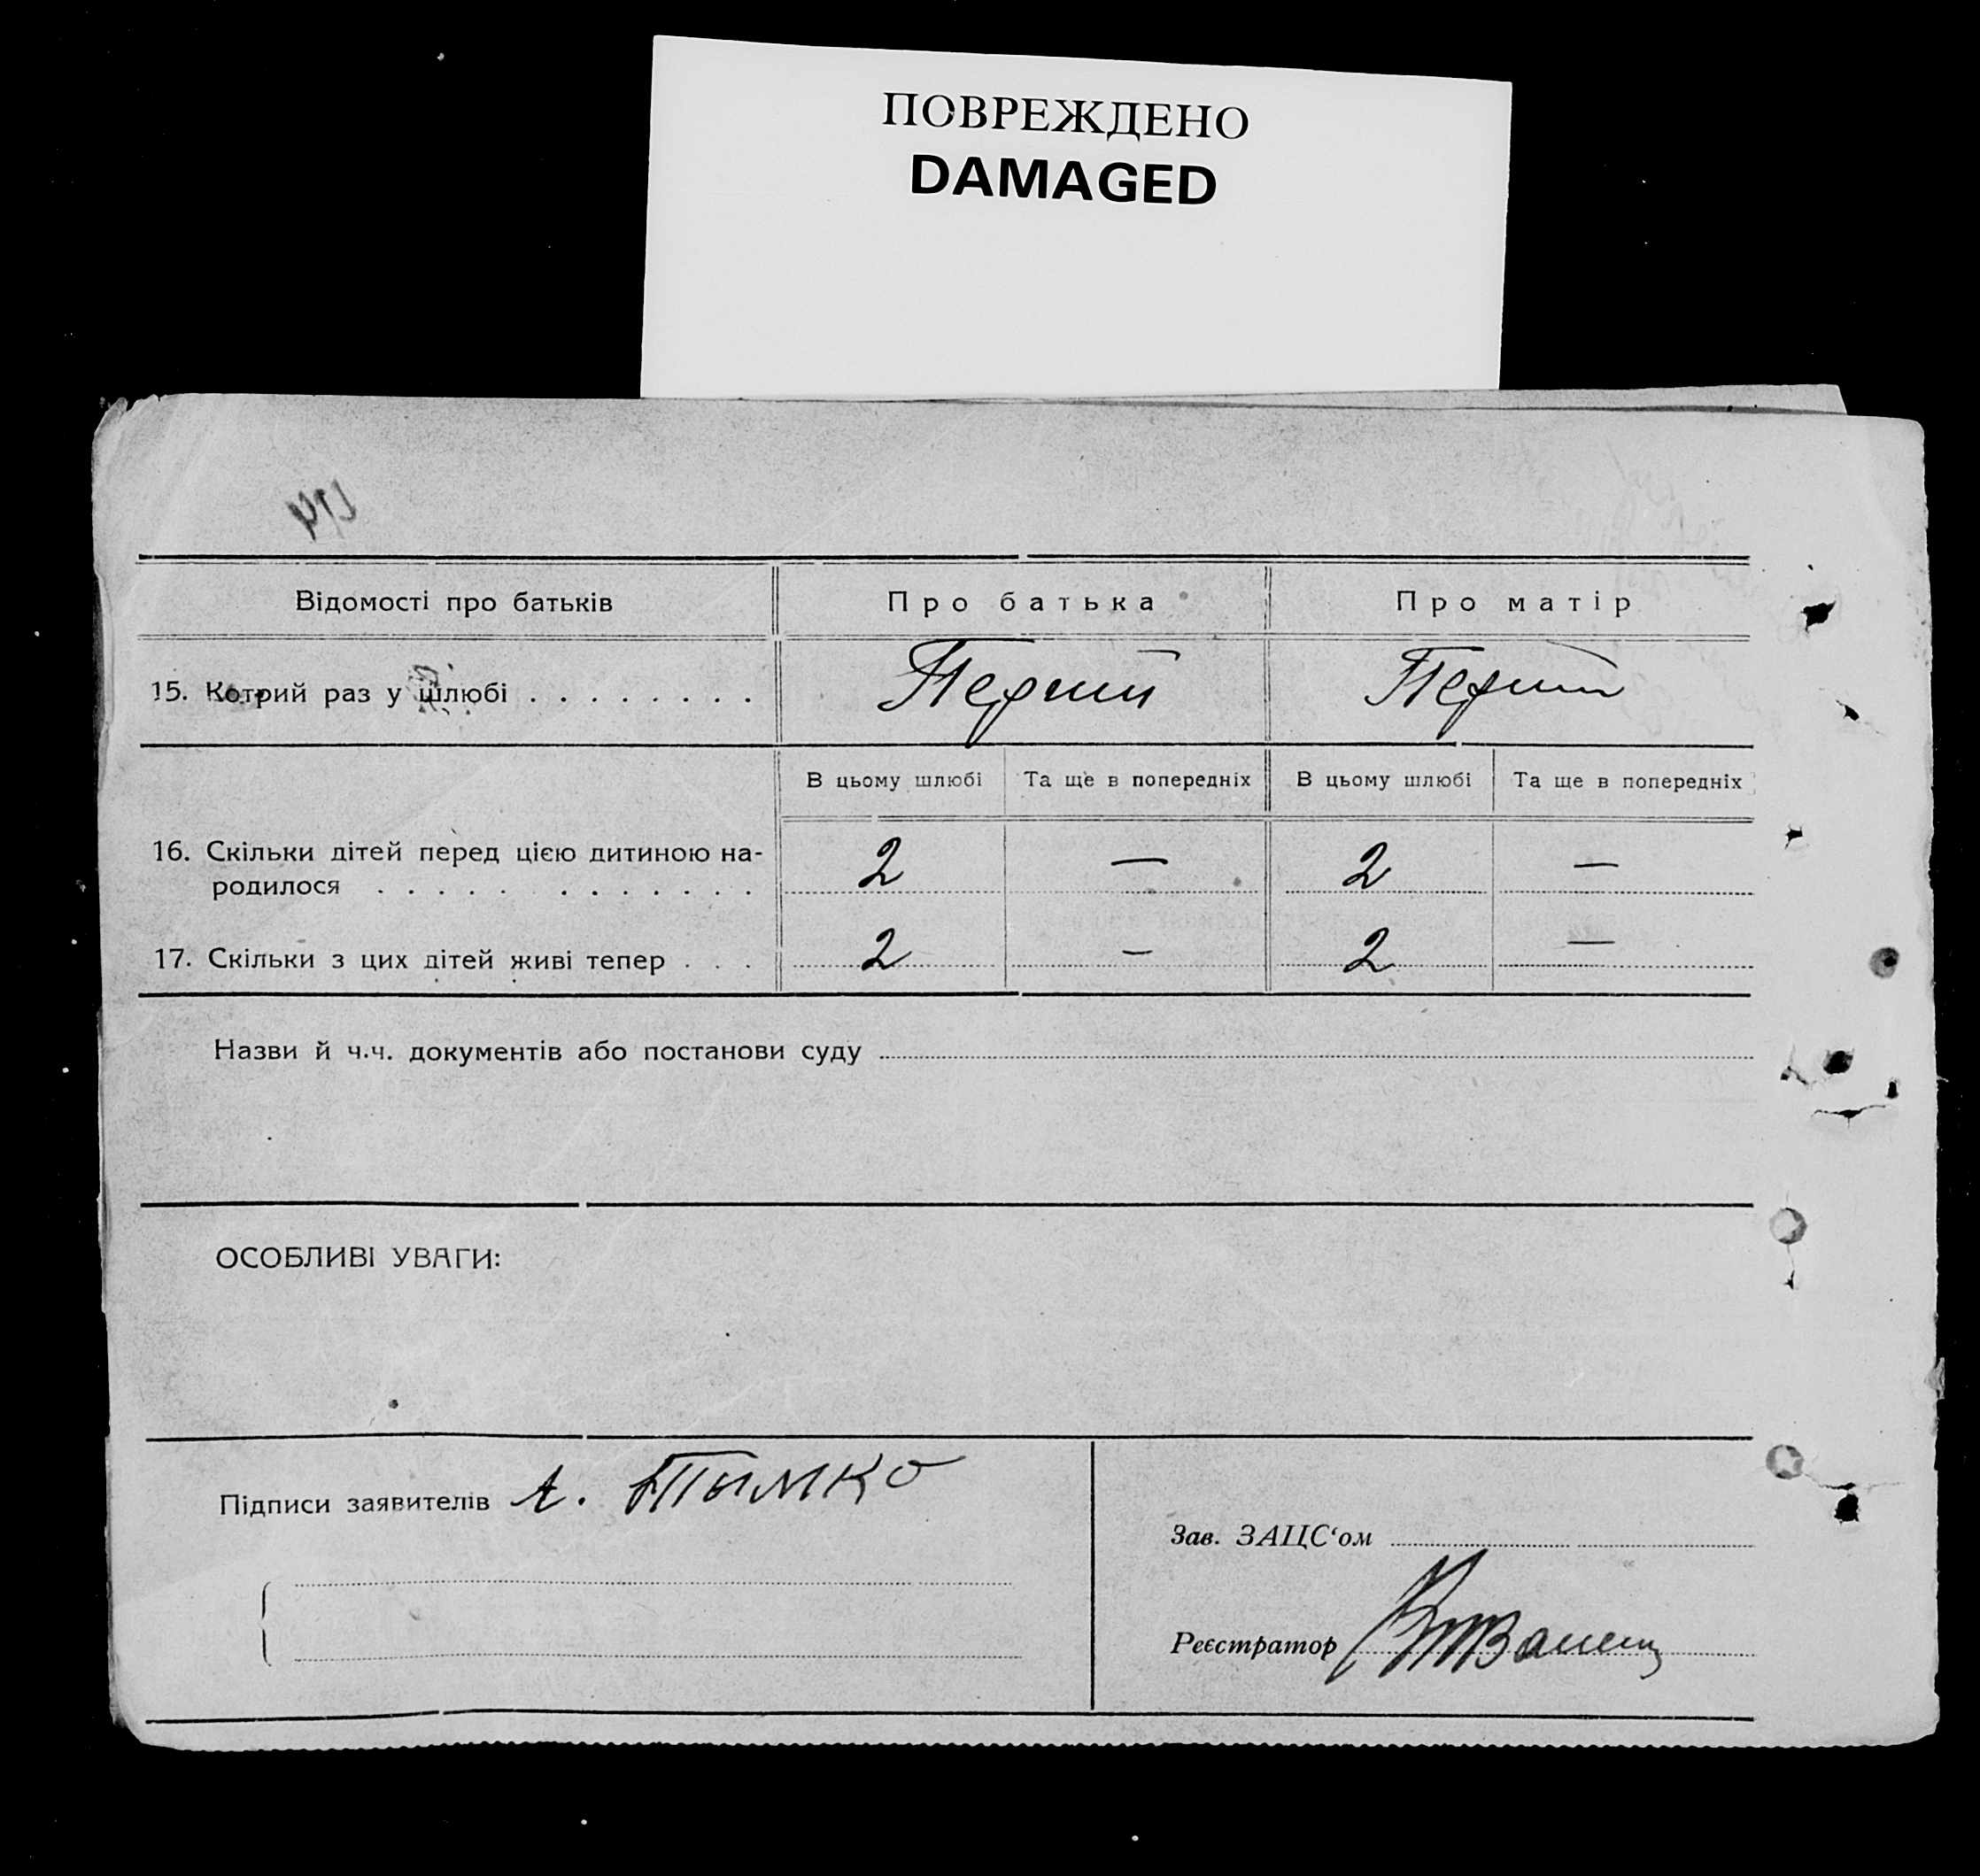 ПОВРЕЖДЕНО
DAMAGED
Відомості про батьків Про батька Про матір
15. Котрий раз у шлюбі . . . . . . . . Перший Перший
В цьому шлюбі Та ще в попередніх В цьому шлюбі Та ще в попередніх
16. Скільки дітей перед цією дитиною на-
родилося . . . . . . . . . . . . 2 — 2 —
17. Скільки з цих дітей живі тепер . . . 2 — 2 —
Назви й ч.ч. документів або постанови суду
ОСОБЛИВІ УВАГИ:
Підписи заявителів А. Тимко
Зав. ЗАЦС‘ом
Реєстратор